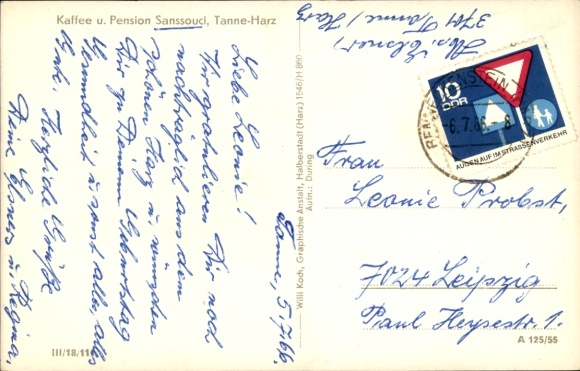 Kaffee u. Pension Sanssouci, Tanne-Harz
Tanne, 5.7.66.
Liebe Leonie!
Wir gratulieren Dir noch
nachträglich aus dem
schönen Harz u. wünschen
Dir zu Deinem Geburtstag
Gesundheit u. sonst alles, alles
Gute. Herzliche Grüße
Deine Elsners u. Regina.
III/18/116
Willi Koch, Graphische Anstalt, Halberstadt (Harz) 1546/H 860
Aufn.: Düring
Elsner,
3701 Tanne/Harz
10
DDR
AUGEN AUF IM STRASSENVERKEHR
-6.7.66.-8
Frau
Leonie Probst,
7024 Leipzig
Paul Heysestr. 1.
A 125/55